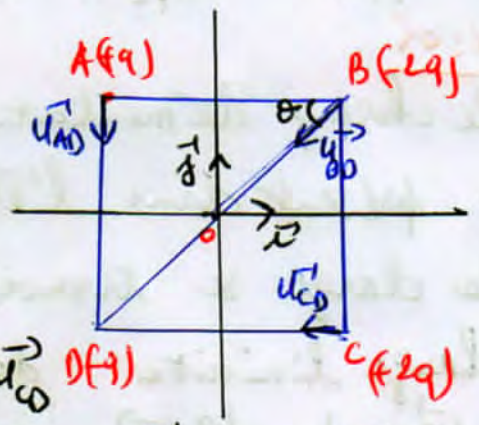 A(+q) B(-2q)
u⃗AD θ u⃗BD
j⃗
O i⃗
u⃗CD
u⃗CD D(-q) C(+2q)